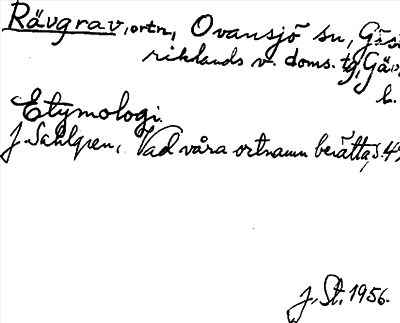 Rävgrav, ortn, Ovansjö sn, Gäst
riklands v. doms. tg, Gävl.
l.
Etymologi.
J. Sahlgren, Vad våra ortnamn berätta, s. 4
J. St. 1956.